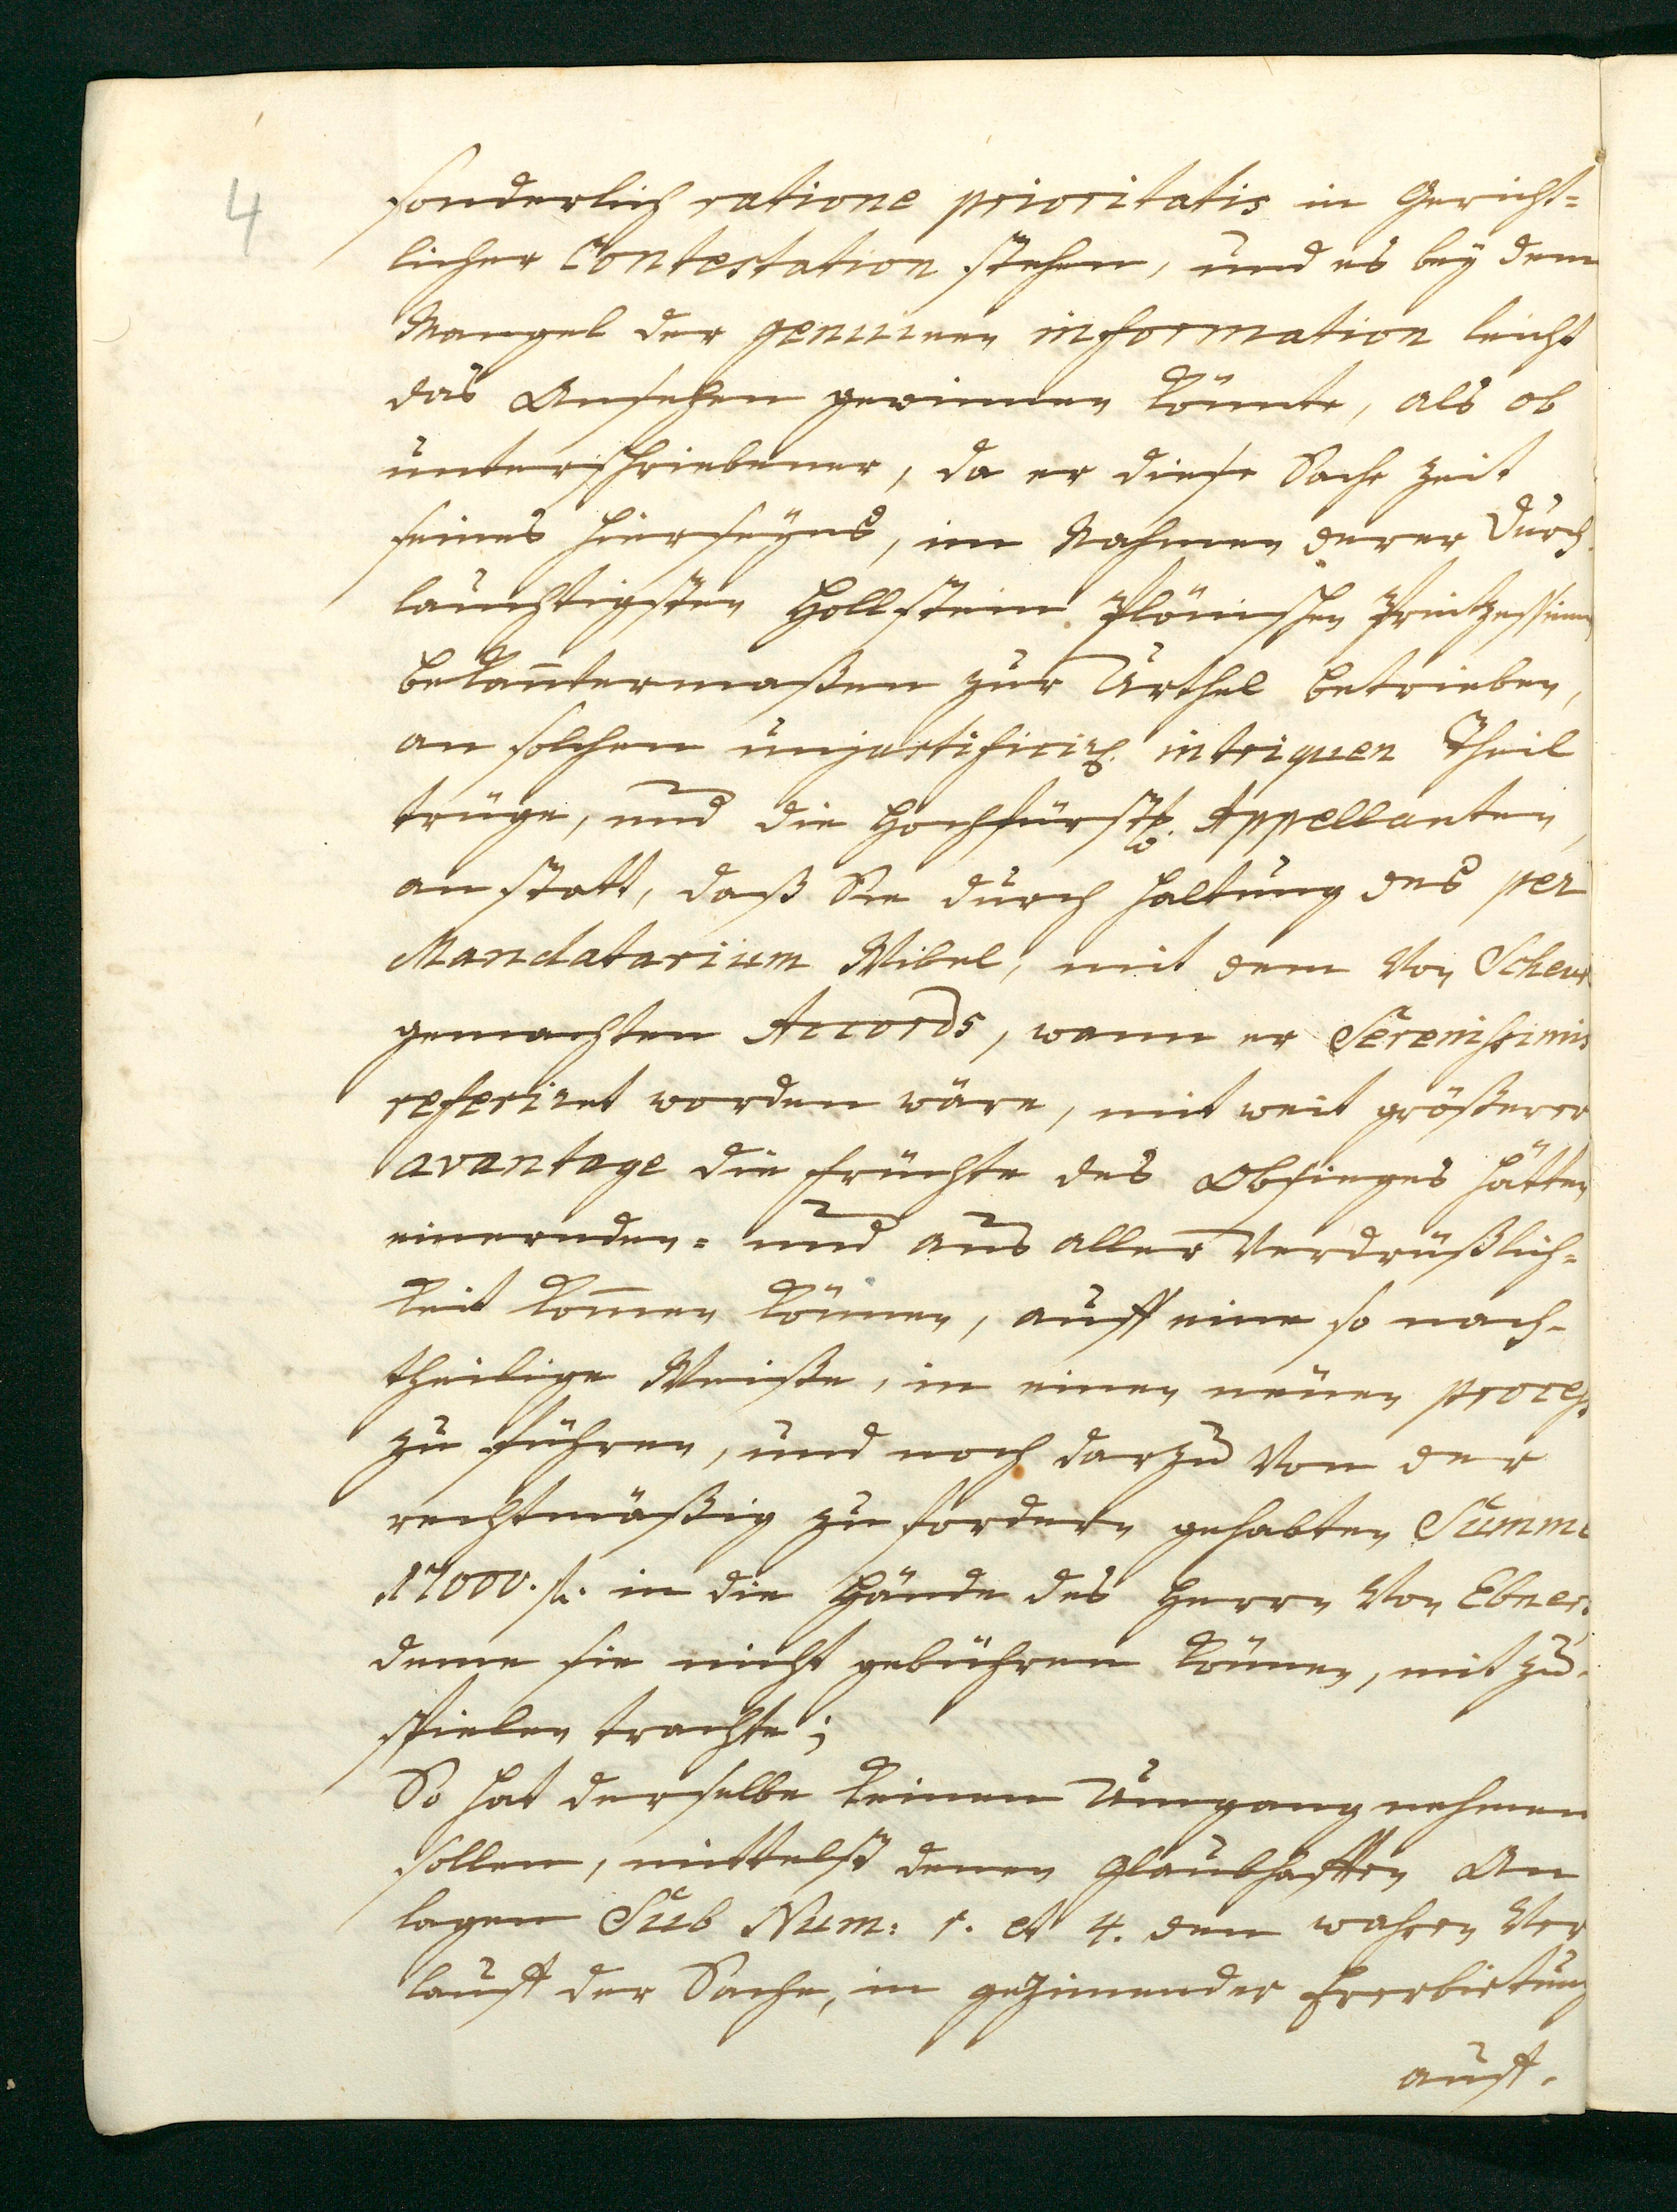 4
sonderlich ratione prioritatis in Gericht=
licher Contestation stehen, und es bey dem
Mangel der genuinen information leicht
das Ansehen gewinnen könnte, als ob
unterschriebener, da er diese Sache zeit
seines hierseyns, im Nahmen derer Durch
lauchtigsten Hollstein Plönischen Printzessinen
bekañtermaßen zur Urthel betrieben,
an solchen unjustificirl. intriquen Theil
trüge, und die Hochfürstl. Appellanten,
an statt, daß Sie durch Haltung des per
Mandatarium Wibel, mit dem von Scheur
gemachten Accords, wann er Serenissimis
referiret worden wäre, mit weit größerer
avantage die früchte des Obsieges hätten
einernden= und aus aller Verdrüßlich=
keit kom̃en können, auff eine so nach=
theilige Weiße, in einen neuen process
zu führen, und noch darzu von der
rechtmäßig zu fordern gehabten Summe
17000. fl. in die Hände des Herrn von Ebner,
deme sie nicht gebühren können, mit zu
spielen trachte;
So hat derselbe keinen Umgang nehmen
sollen, mittelst denen glaubhafften An
lagen Sub Num: 1. et 4. den wahren Ver
lauff der Sache, in geziemender Ehrerbietung
auff-